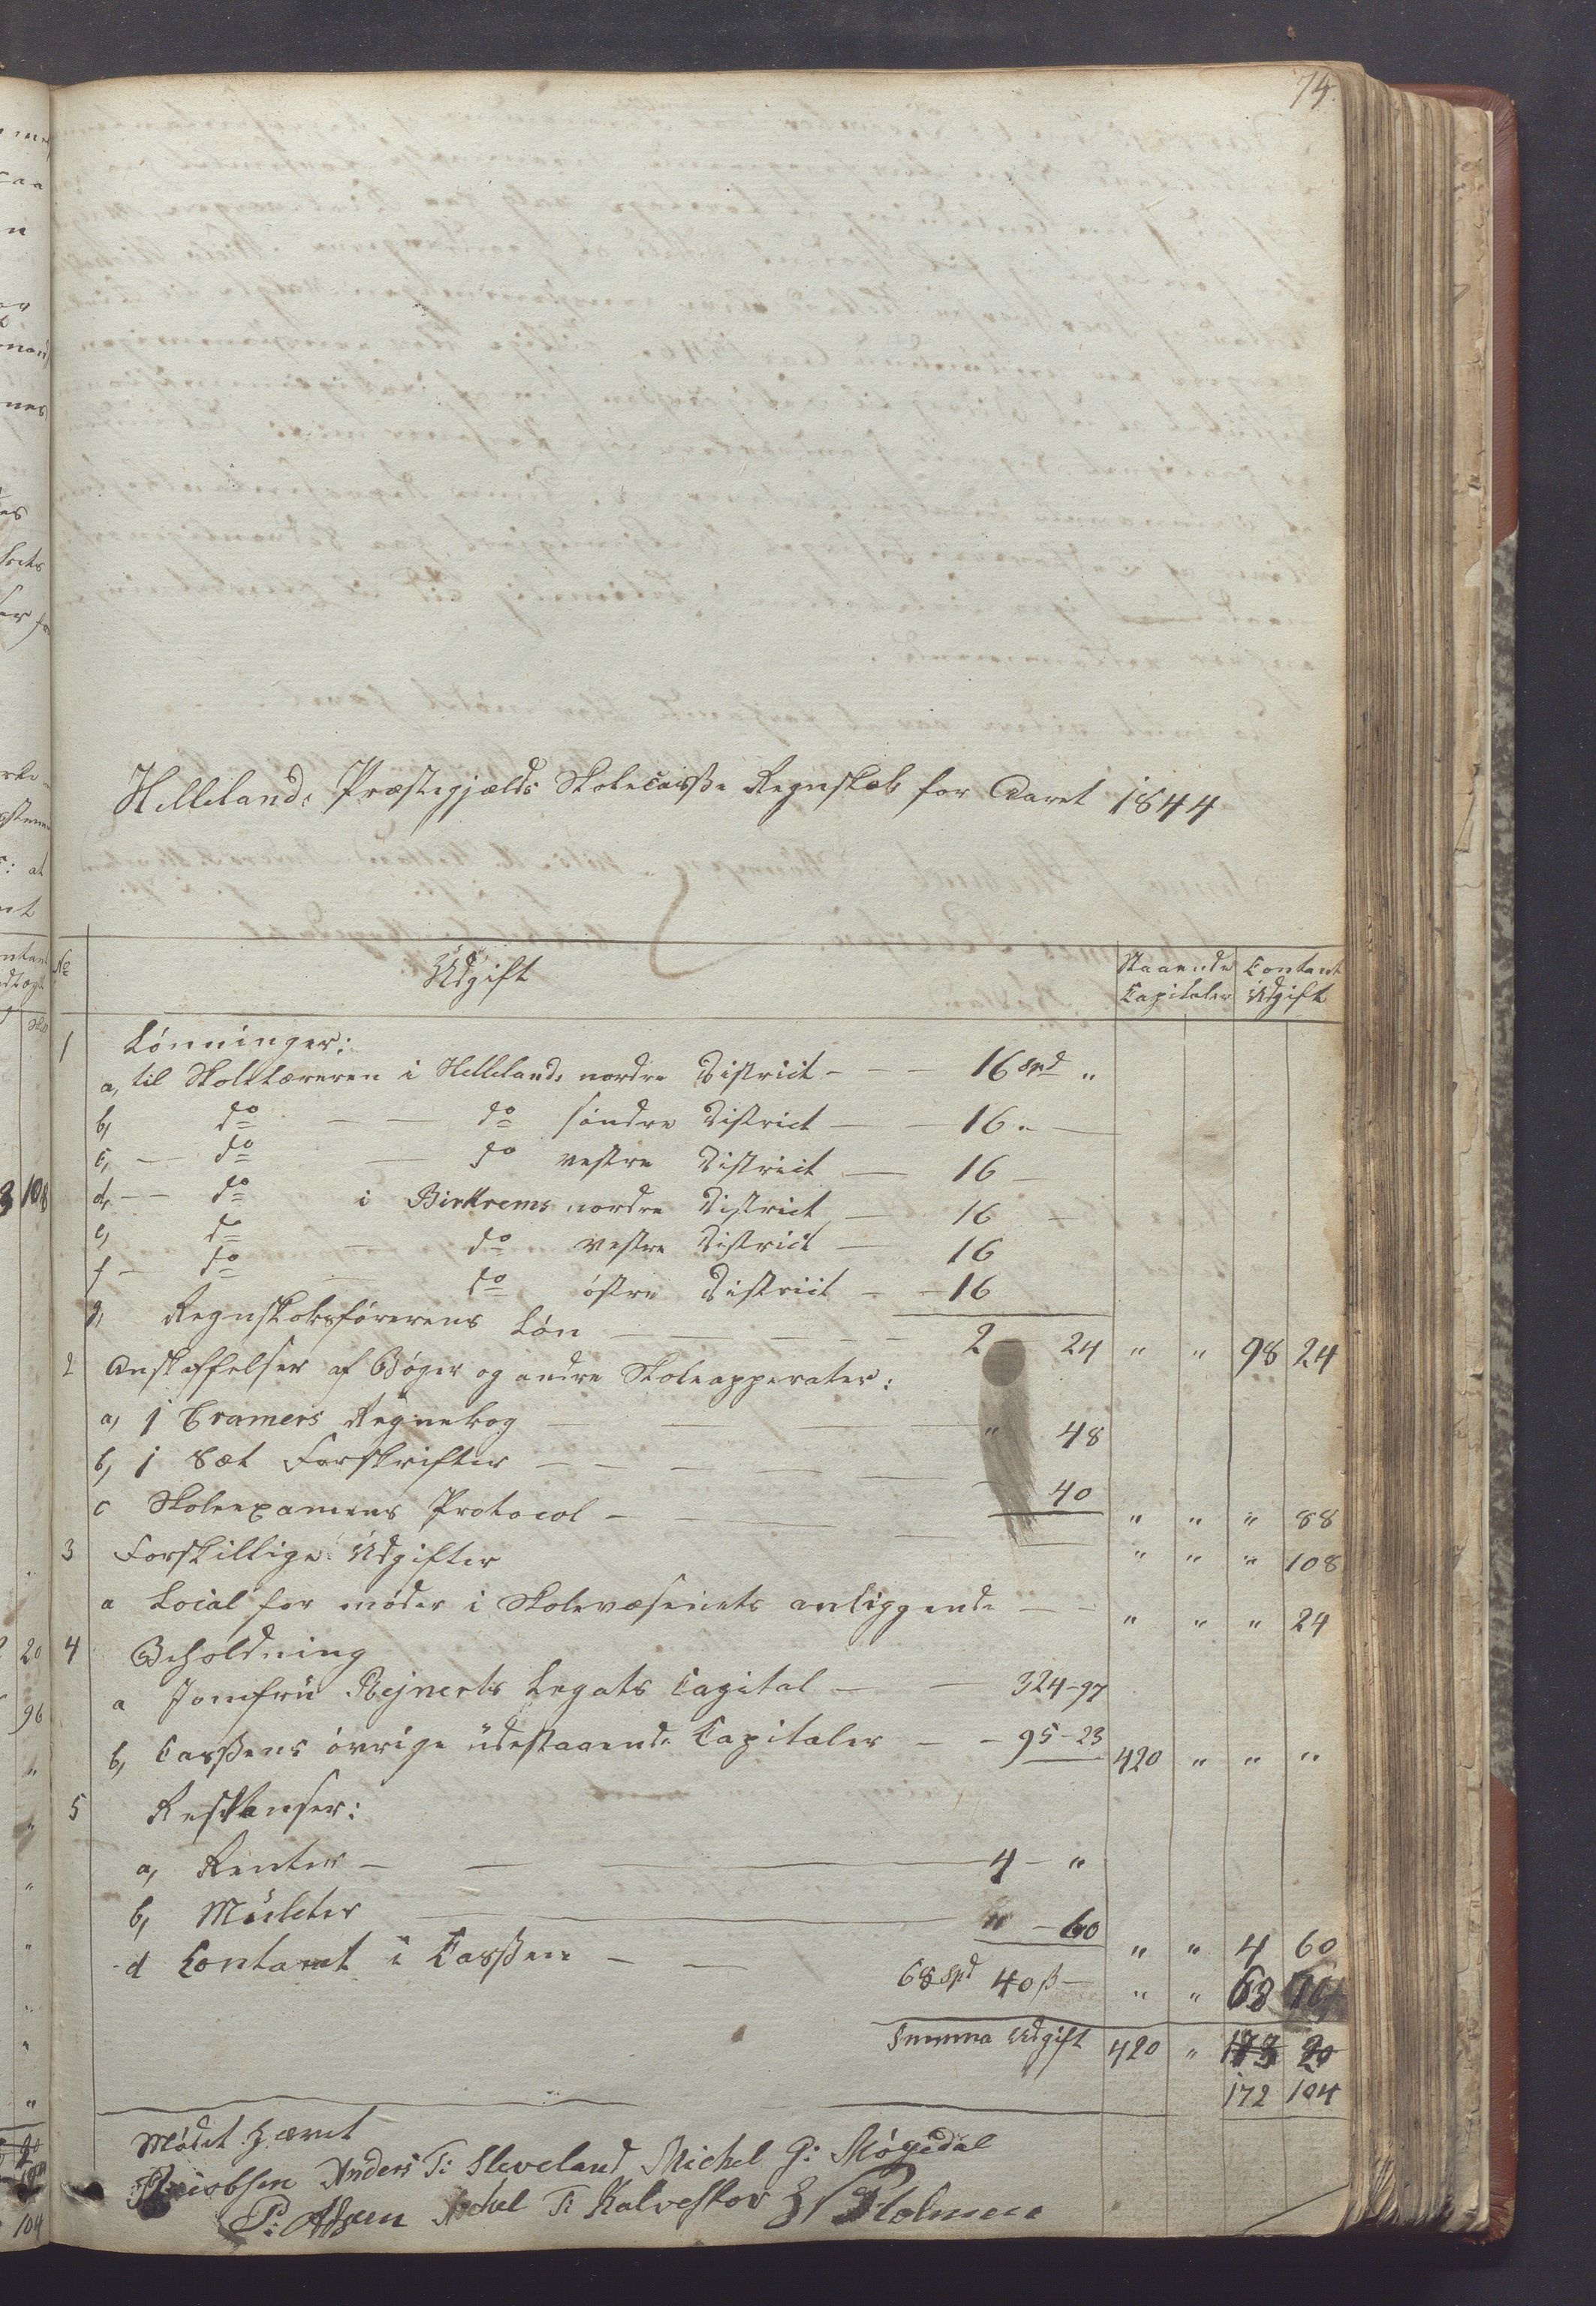 74.
Hellelands Præstegjælds Skolecasse Regnskab for Aaret 1844
No Udgift Staaende Capitaler Contant Udgift
1 Lønninger:
a, til Skolelæreren i Hellelands nordre District - - - 16 Spd "
b, do - - do søndre District - - 16 " -
c, - do - do vestre District - 16 -
d, - - do i Birkrems nordre District - 16 -
e, do - do vestre District - 16
f - do - do østre District - - 16
g, Regnskabsførerens Løn - - - - - - 2 24 " " 98 24
2 Anskaffelser af Bøger og andre Skoleapparater:
a, 1 Cramers Regnebog - - - - " 48
b, 1 Sæt Forskrifter - - - - - - - 40 " " " 88
c Skoleexamens Protocol - - - - - " " " 108
3 Forskillige Udgifter
a Local for møder i Skolevæsenets anliggende - - " " " 24
4 Beholdning
a Jomfru Rejnerts Legats Capital - - 324-97
b, Cassens øvrige udestaaende Capitaler - - 95-23 420 " " "
5 Restanser:
a, Renter - - - - 4 - "
b, Mulcter - - " - 60 " " 4 60
d Contant i Cassen - - 68 Spd 40 ß - " " 68
Summa Udgift 420 " 173 20
172 104
Mødet hævet
Anders T: Sleveland Michel G: Møgedal
T: Kalveskov Holmen